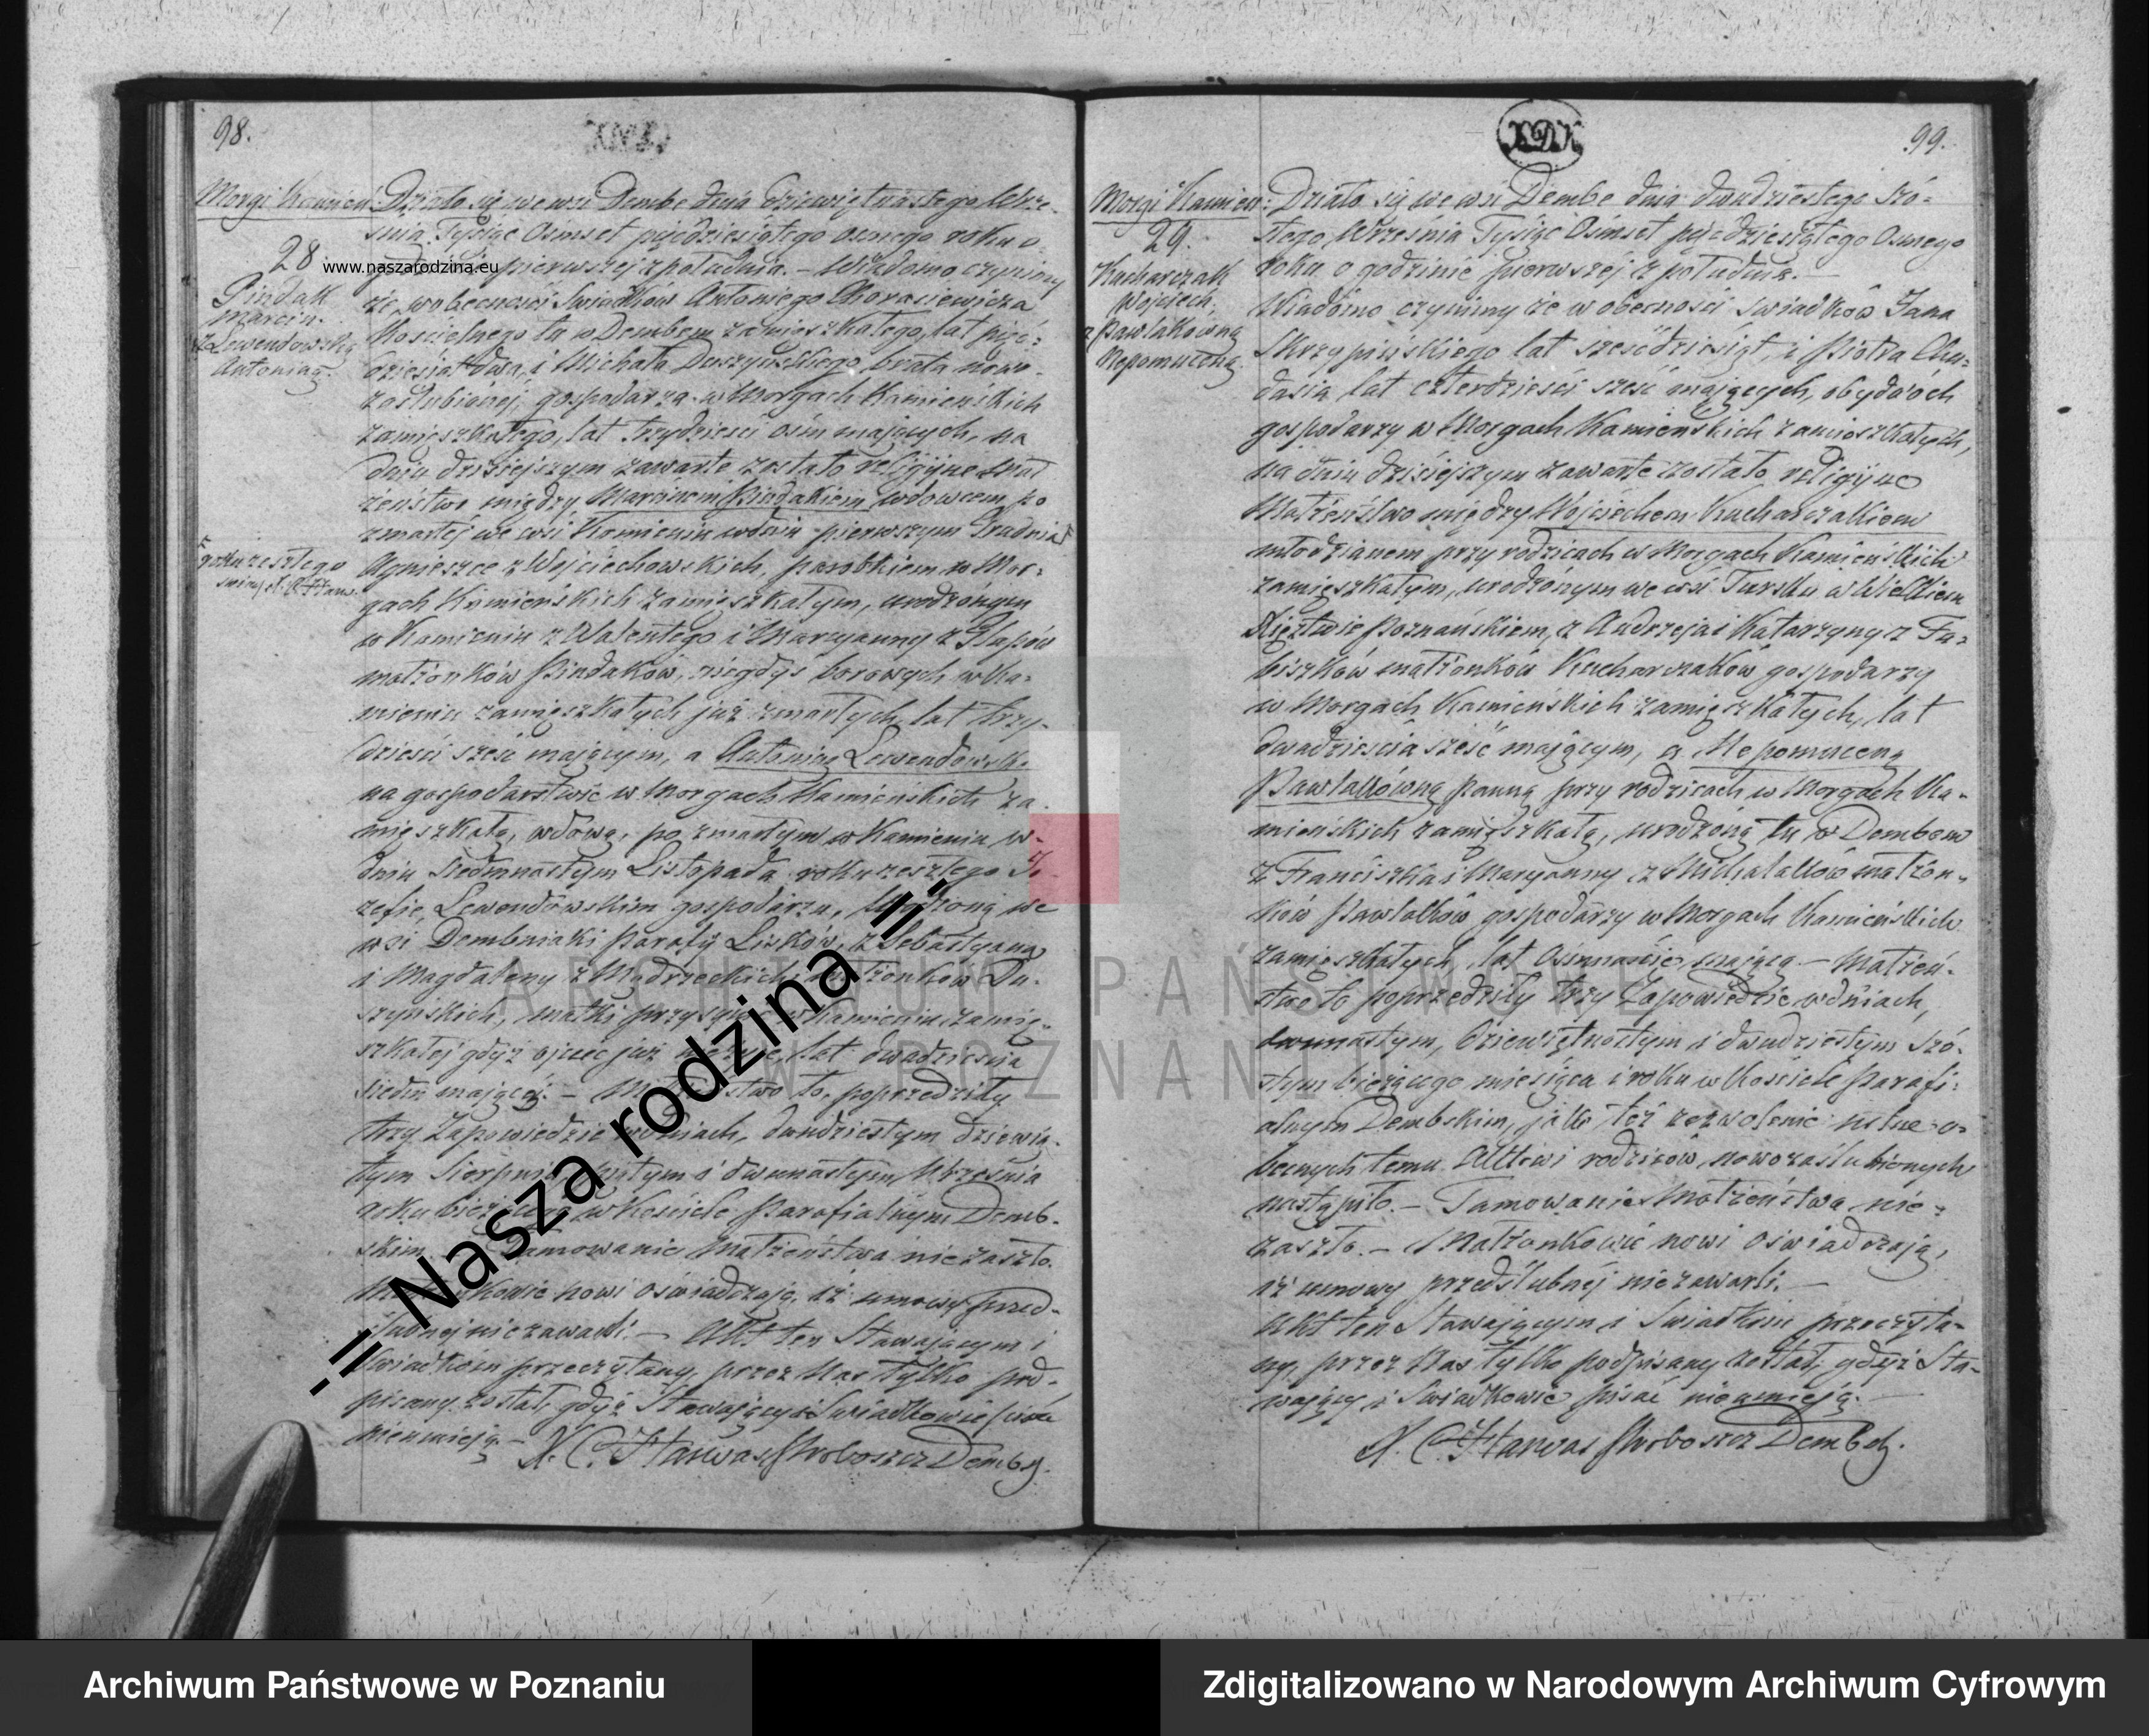 98.
Morgi Kamień: Działo się we wsi Dembe dnia dziewiętnastego Wrze-
28
Pindak
Marcin.
z Lewendowską
Antoniną.
śnia Tysiąc Ośmset pięćdziesiątego osmego roku o
pierwszej z południa. – Wiadomo czynimy
że w obecności Świadków Antoniego Chorasiewicza
Kościelnego tu w Dembem zamieszkałego, lat pięć-
dziesiąt dwa, i Michała Duszyńskiego brata nowo-
zaślubionej, gospodarza w Morgach Kamieńskich
zamieszkałego, lat trzydzieści ośm mających, na
dniu dzisiejszym zawarte zostało religijne Mał
żeństwo między Marcinem Pindakiem wdowcem po
zmarłej we wsi Kamieniu w dniu pierwszym Grudnia
roku zeszłego
Agnieszce z Wojciechowskich, parobkiem w Mor-
gach Kamieńskich zamieszkałym, urodzonym
w Kamieniu z Walentego i Maryanny z Słupów
małżonków Pindaków, niegdyś borowych w Ka-
mieniu zamieszkałych już zmarłych, lat trzy-
dzieści sześć mającym, a Antoniną Lewendowsk.
na gospodarstwie w Morgach Kamieńskich za-
mięszkałą, wdową, po zmarłym w Kamieniu w
dniu siedmnastym Listopada roku zeszłego Jó-
zefie Lewendowskim gospodarzu, urodzoną we
wsi Dembniaki parafii Lisków, z Sebastyana
i Magdaleny z Mądrzeckich małżonków Du-
szyńskich, matki przy w Kamieniu zamię-
szkałej gdyż ojciec już nie żyje, lat dwadzieścia
siedm mającą. – Małżeństwo to poprzedziły
trzy Zapowiedzie w dniach, dwudziestym dziewią-
tym Sierpnia, piątym i dwunastym Września
roku bieżącego w Kościele Parafialnym Demb-
skim. Tamowanie Małżeństwa nie zaszło.
Małżonkowie nowi oświadczają, iż umowy przed-
ślubnej nie zawarli. – Akt ten Stawającym i
Świadkom przeczytany, przez Nas tylko pod-
pisany został, gdyż Stawający i Świadkowie pisać
nieumieją. – X. C. Stanwas Proboszcz Dembs.
www.naszarodzina.eu
-= Nasza rodzina =-
99.
Morgi Kamień: Działo się we wsi Dembe dnia dwudziestego szó-
29.
Kucharczak
Wojciech,
z Pawlakówną
Nepomuceną
stego Września Tysiąc Ośmset pięćdziesiątego Osmego
roku o godzinie pierwszej z południa. –
Wiadomo czynimy że w obecności świadków Jana
Skrzypińskiego lat sześćdziesiąt, i Piotra Chu-
dasia lat czterdzieści sześć mających, obydwóch
gospodarzy w Morgach Kamieńskich zamieszkałych,
na dniu dzisiejszym zawarte zostało religijne
Małżeństwo między Wojciechem Kucharczakiem
młodzianem przy rodzicach w Morgach Kamieńskich
zamięszkałym, urodzonym we wsi Tursku w Wielkiem
Xięztwie Poznańskiem, z Andrzeja i Katarzyny z Fa-
biszków małżonków Kucharczaków gospodarzy
w Morgach Kamieńskich zamięszkałych, lat
dwadzieścia sześć mającym, a Nepomuceną
Pawlakówną Panną przy rodzicach w Morgach Ka-
mieńskich zamięszkałą, urodzoną tu w Dembem
z Franciszka i Maryanny z Michalaków małżon-
ków Pawlaków gospodarzy w Morgach Kamieńskich
zamięszkałych, lat osimnaście mającą. – Małżeń-
stwo to poprzedziły trzy Zapowiedzie w dniach,
dwunastym, dziewiętnastym i dwudziestym szó-
stym bieżącego miesiąca i roku w Kościele Parafi-
alnym Dembskim, jako też zezwolenie ustne o-
becnych temu Aktowi rodziców nowozaślubionych
nastąpiło. – Tamowanie Małżeństwa nie-
zaszło. – Małżonkowie nowi oświadczają,
iż umowy przedślubnej nie zawarli. –
Akt ten Stawającym i Świadkom przeczyta-
ny, przez Nas tylko podpisany został, gdyż Sta-
wający i Świadkowie pisać nieumieją. –
X. C. Stanwas Proboszcz Dembs.
ARCHIWUM PAŃSTWOWE
W POZNANIU
Archiwum Państwowe w Poznaniu
Zdigitalizowano w Narodowym Archiwum Cyfrowym